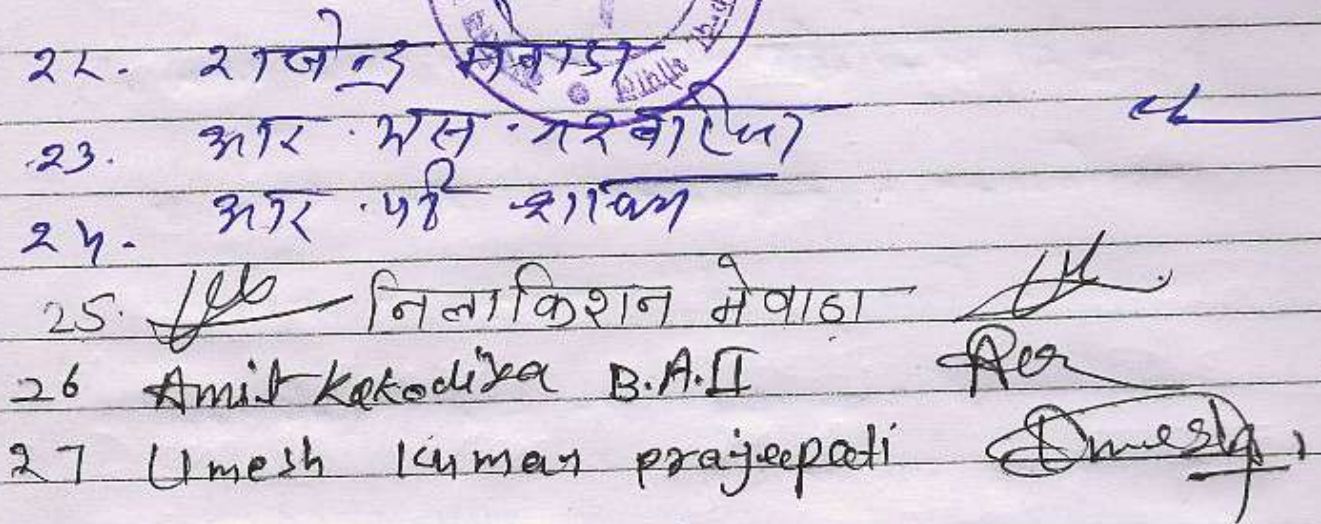 २२. राजेन्द्र मेवाडा
२३. आर. एस. नरवारिया
२४. आर. पी शाक्य
25. निलाकिशन मेवाडा
26 Amit Kakodiya B.A.II
27 Umesh Kumar prajeepati Umesh